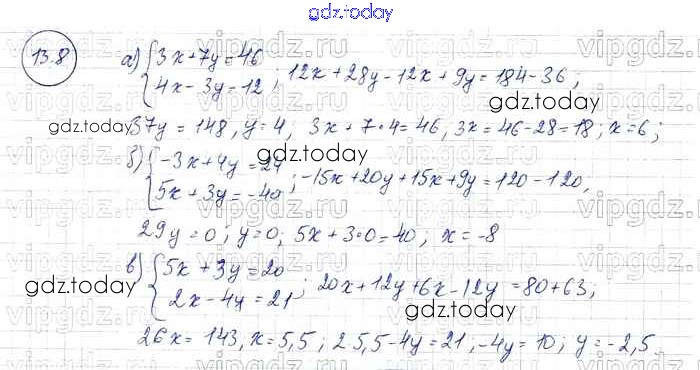 gdz.today
13.8
а) {3x+7y=46
{4x-3y=12 ; 12x+28y-12x+9y=184-36;
gdz.today
37y=148, y=4; 3x+7·4=46, 3x=46-28=18; x=6;
gdz.today
gdz.today
б) {-3x+4y=24
{5x+3y=-40 ; -15x+20y+15x+9y=120-120,
29y=0; y=0; 5x+3·0=-40, x=-8
gdz.today
в) {5x+3y=20
{2x-4y=21 ; 20x+12y+6x-12y=80+63;
gdz.today
gdz.today
26x=143, x=5,5; 2 5,5-4y=21, -4y=10; y=-2,5
gdz.today